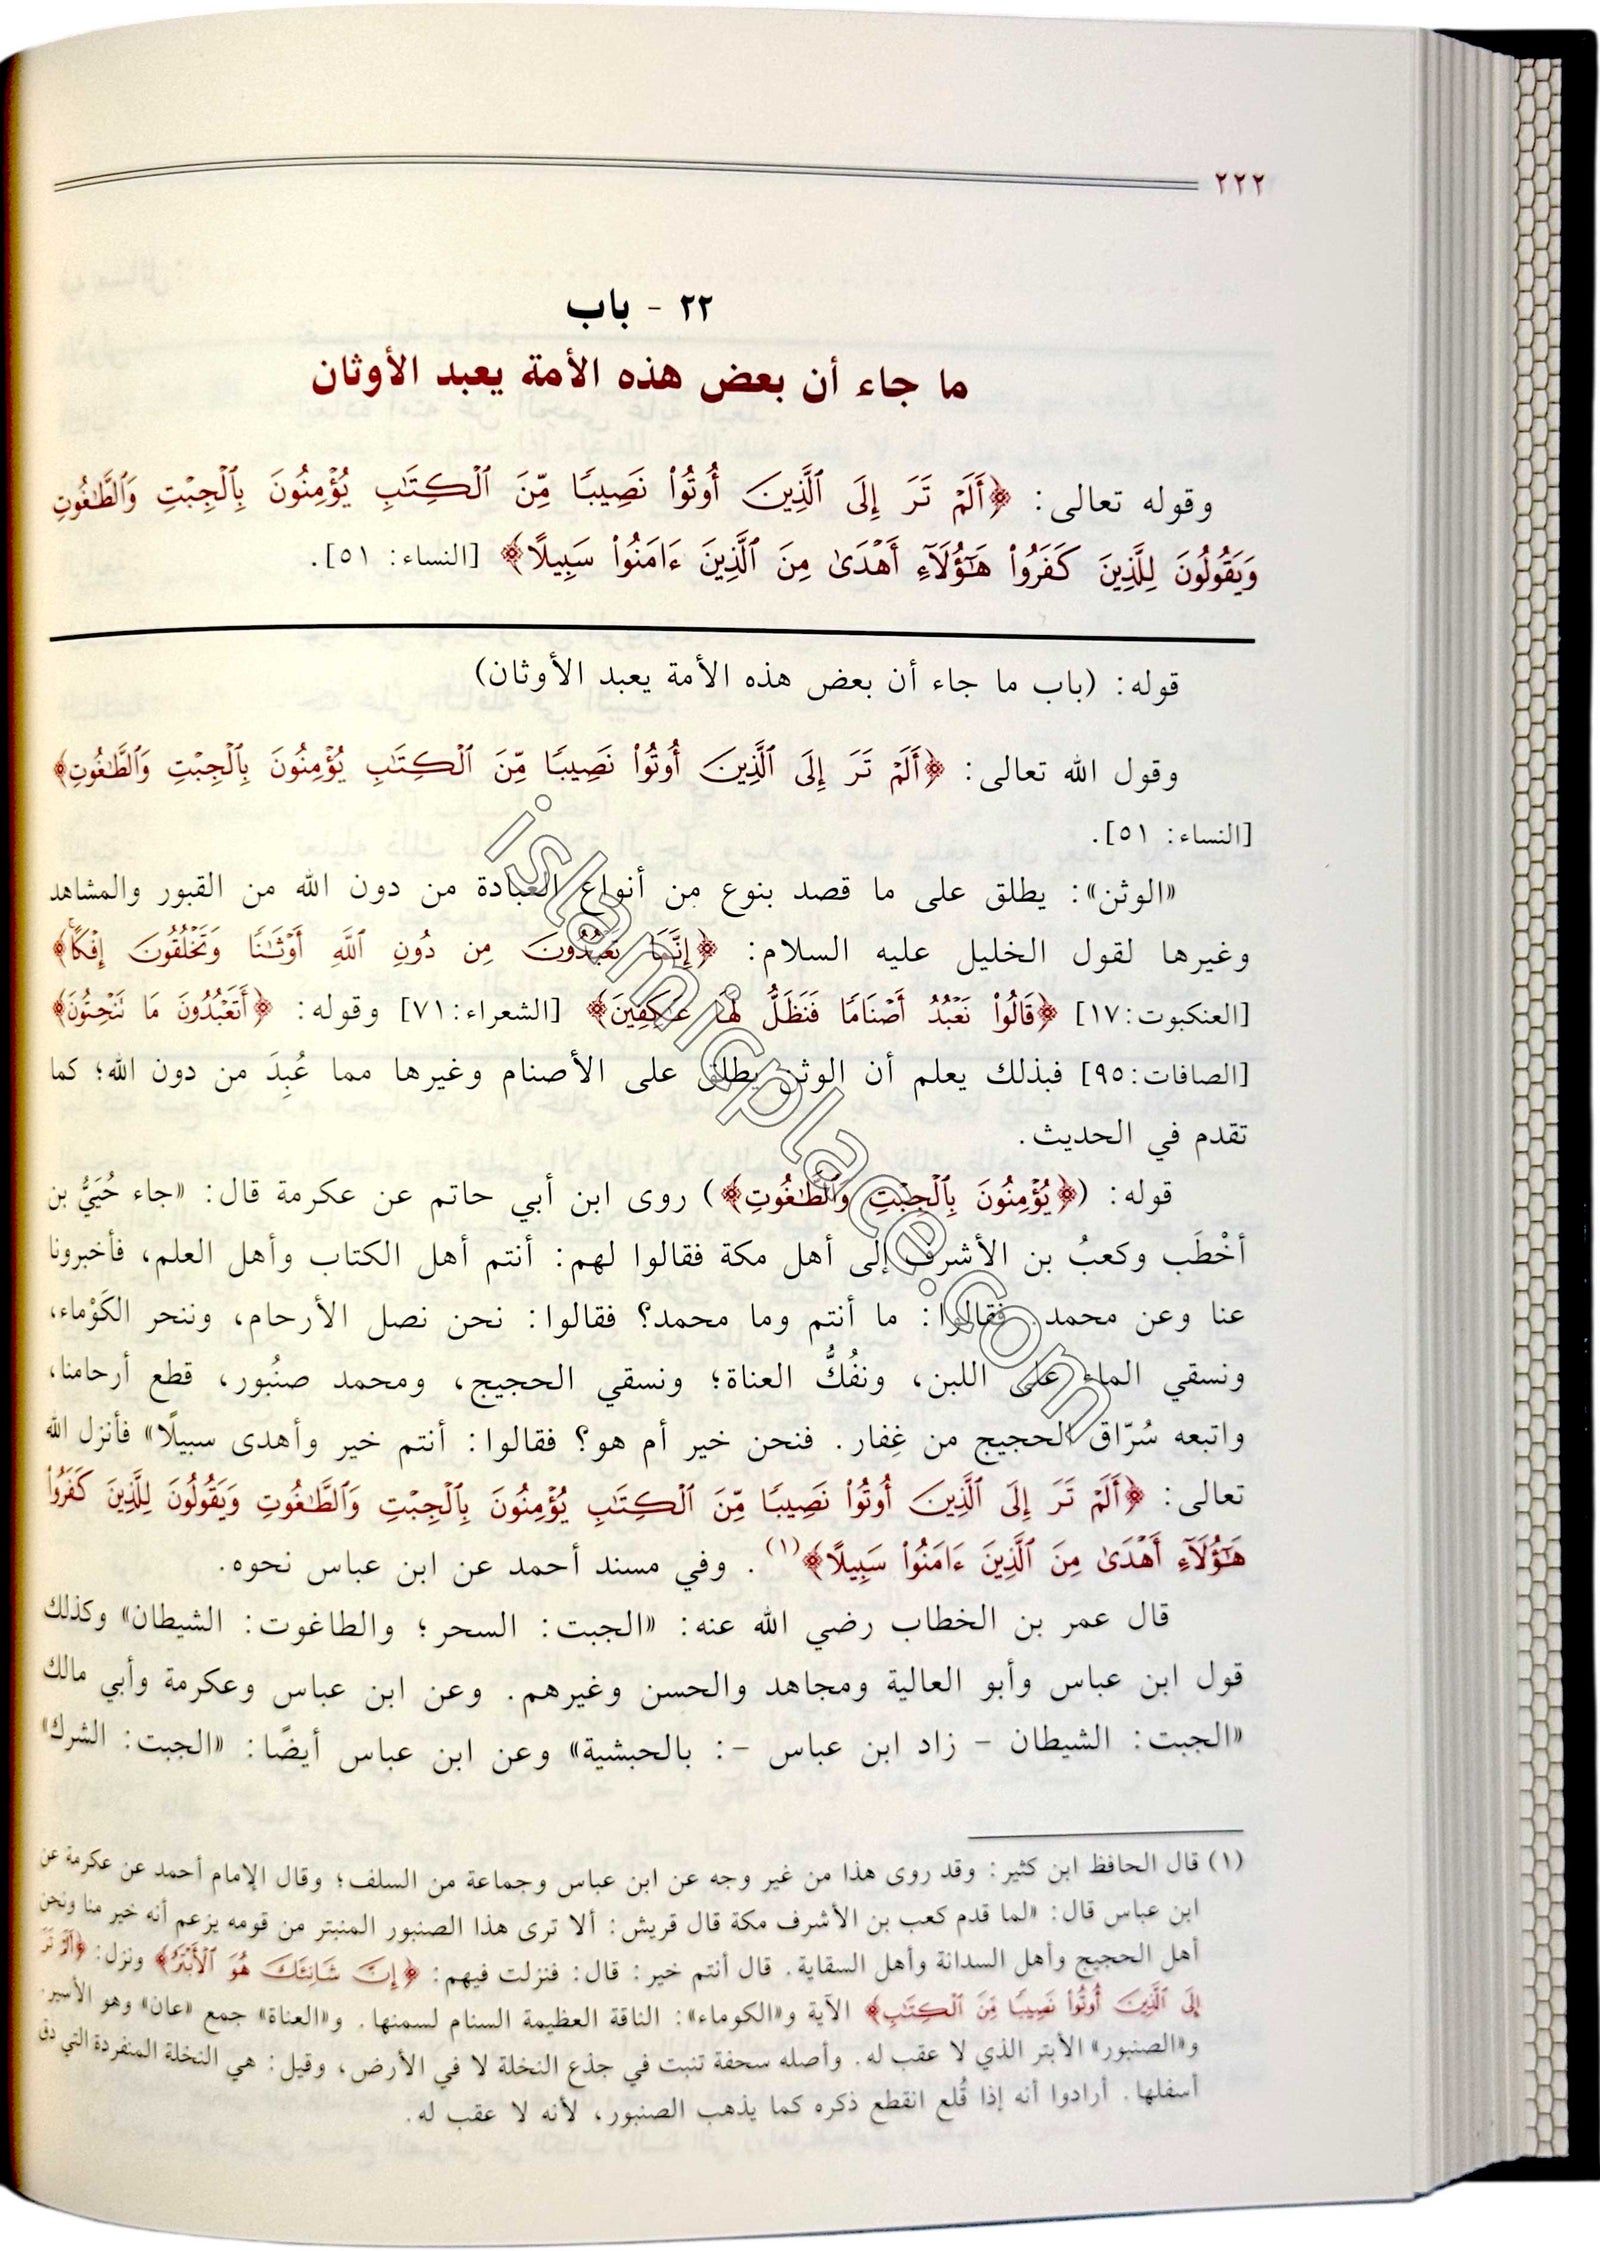 ٢٢٢
٢٢ - باب
ما جاء أن بعض هذه الأمة يعبد الأوثان
وقوله تعالى: ﴿أَلَمْ تَرَ إِلَى ٱلَّذِينَ أُوتُوا۟ نَصِيبًا مِّنَ ٱلْكِتَٰبِ يُؤْمِنُونَ بِٱلْجِبْتِ وَٱلطَّٰغُوتِ
وَيَقُولُونَ لِلَّذِينَ كَفَرُوا۟ هَٰٓؤُلَآءِ أَهْدَىٰ مِنَ ٱلَّذِينَ ءَامَنُوا۟ سَبِيلًا﴾ [النساء: ٥١].
قوله: (باب ما جاء أن بعض هذه الأمة يعبد الأوثان)
وقول الله تعالى: ﴿أَلَمْ تَرَ إِلَى ٱلَّذِينَ أُوتُوا۟ نَصِيبًا مِّنَ ٱلْكِتَٰبِ يُؤْمِنُونَ بِٱلْجِبْتِ وَٱلطَّٰغُوتِ﴾
[النساء: ٥١].
«الوثن»: يطلق على ما قصد بنوع من أنواع العبادة من دون الله من القبور والمشاهد
وغيرها لقول الخليل عليه السلام: ﴿إِنَّمَا تَعْبُدُونَ مِن دُونِ ٱللَّهِ أَوْثَٰنًا وَتَخْلُقُونَ إِفْكًا﴾
[العنكبوت: ١٧] ﴿قَالُوا۟ نَعْبُدُ أَصْنَامًا فَنَظَلُّ لَهَا عَٰكِفِينَ﴾ [الشعراء: ٧١] وقوله: ﴿أَتَعْبُدُونَ مَا تَنْحِتُونَ﴾
[الصافات: ٩٥] فبذلك يعلم أن الوثن يطلق على الأصنام وغيرها مما عُبِدَ من دون الله؛ كما
تقدم في الحديث.
قوله: (﴿يُؤْمِنُونَ بِٱلْجِبْتِ وَٱلطَّٰغُوتِ﴾) روى ابن أبي حاتم عن عكرمة قال: «جاء حُيَيُّ بن
أخْطَب وكعبُ بن الأشرف إلى أهل مكة فقالوا لهم: أنتم أهل الكتاب وأهل العلم، فأخبرونا
عنا وعن محمد. فقالوا: ما أنتم وما محمد؟ فقالوا: نحن نصل الأرحام، وننحر الكَوْماء،
ونسقي الماء على اللبن، ونفُكُّ العناة؛ ونسقي الحجيج، ومحمد صنُبور، قطع أرحامنا،
واتبعه سُرّاق الحجيج من غِفار. فنحن خير أم هو؟ فقالوا: أنتم خير وأهدى سبيلًا» فأنزل الله
تعالى: ﴿أَلَمْ تَرَ إِلَى ٱلَّذِينَ أُوتُوا۟ نَصِيبًا مِّنَ ٱلْكِتَٰبِ يُؤْمِنُونَ بِٱلْجِبْتِ وَٱلطَّٰغُوتِ وَيَقُولُونَ لِلَّذِينَ كَفَرُوا۟
هَٰٓؤُلَآءِ أَهْدَىٰ مِنَ ٱلَّذِينَ ءَامَنُوا۟ سَبِيلًا﴾(١). وفي مسند أحمد عن ابن عباس نحوه.
قال عمر بن الخطاب رضي الله عنه: «الجبت: السحر؛ والطاغوت: الشيطان» وكذلك
قول ابن عباس وأبو العالية ومجاهد والحسن وغيرهم. وعن ابن عباس وعكرمة وأبي مالك
«الجبت: الشيطان - زاد ابن عباس -: بالحبشية» وعن ابن عباس أيضًا: «الجبت: الشرك»
(١) قال الحافظ ابن كثير: وقد روى هذا من غير وجه عن ابن عباس وجماعة من السلف؛ وقال الإمام أحمد عن عكرمة عن
ابن عباس قال: «لما قدم كعب بن الأشرف مكة قال قريش: ألا ترى هذا الصنبور المنبتر من قومه يزعم أنه خير منا ونحن
أهل الحجيج وأهل السدانة وأهل السقاية. قال أنتم خير: قال: فنزلت فيهم: ﴿إِنَّ شَانِئَكَ هُوَ ٱلْأَبْتَرُ﴾ ونزل: ﴿أَلَمْ تَرَ
إِلَى ٱلَّذِينَ أُوتُوا۟ نَصِيبًا مِّنَ ٱلْكِتَٰبِ﴾ الآية و«الكوماء»: الناقة العظيمة السنام لسمنها. و«العناة» جمع «عان» وهو الأسير.
و«الصنبور» الأبتر الذي لا عقب له. وأصله سحفة تنبت في جذع النخلة لا في الأرض، وقيل: هي النخلة المنفردة التي دق
أسفلها. أرادوا أنه إذا قُلع انقطع ذكره كما يذهب الصنبور، لأنه لا عقب له.
islamicplace.com